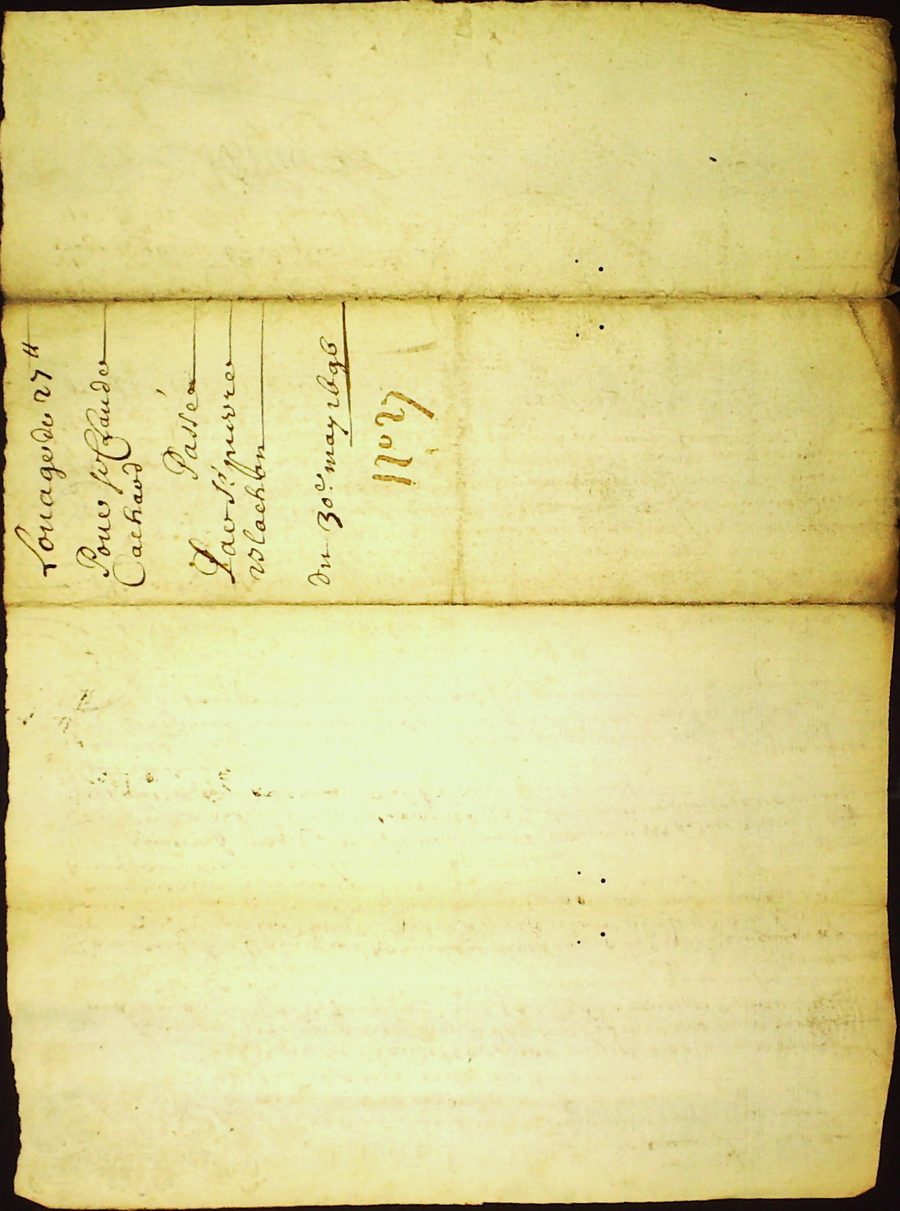 Louage de 27 ₶
Pour sr Claude
Cachard
Passée
Par Sr pierre
Vlachon
du 30e may 1696
no 27